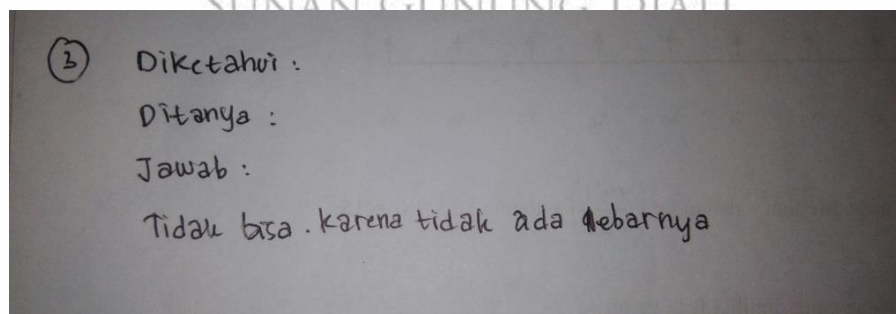 SUNAN GUNUNG DJATI
3 Diketahui :
Ditanya :
Jawab :
Tidak bisa . karena tidak ada lebarnya